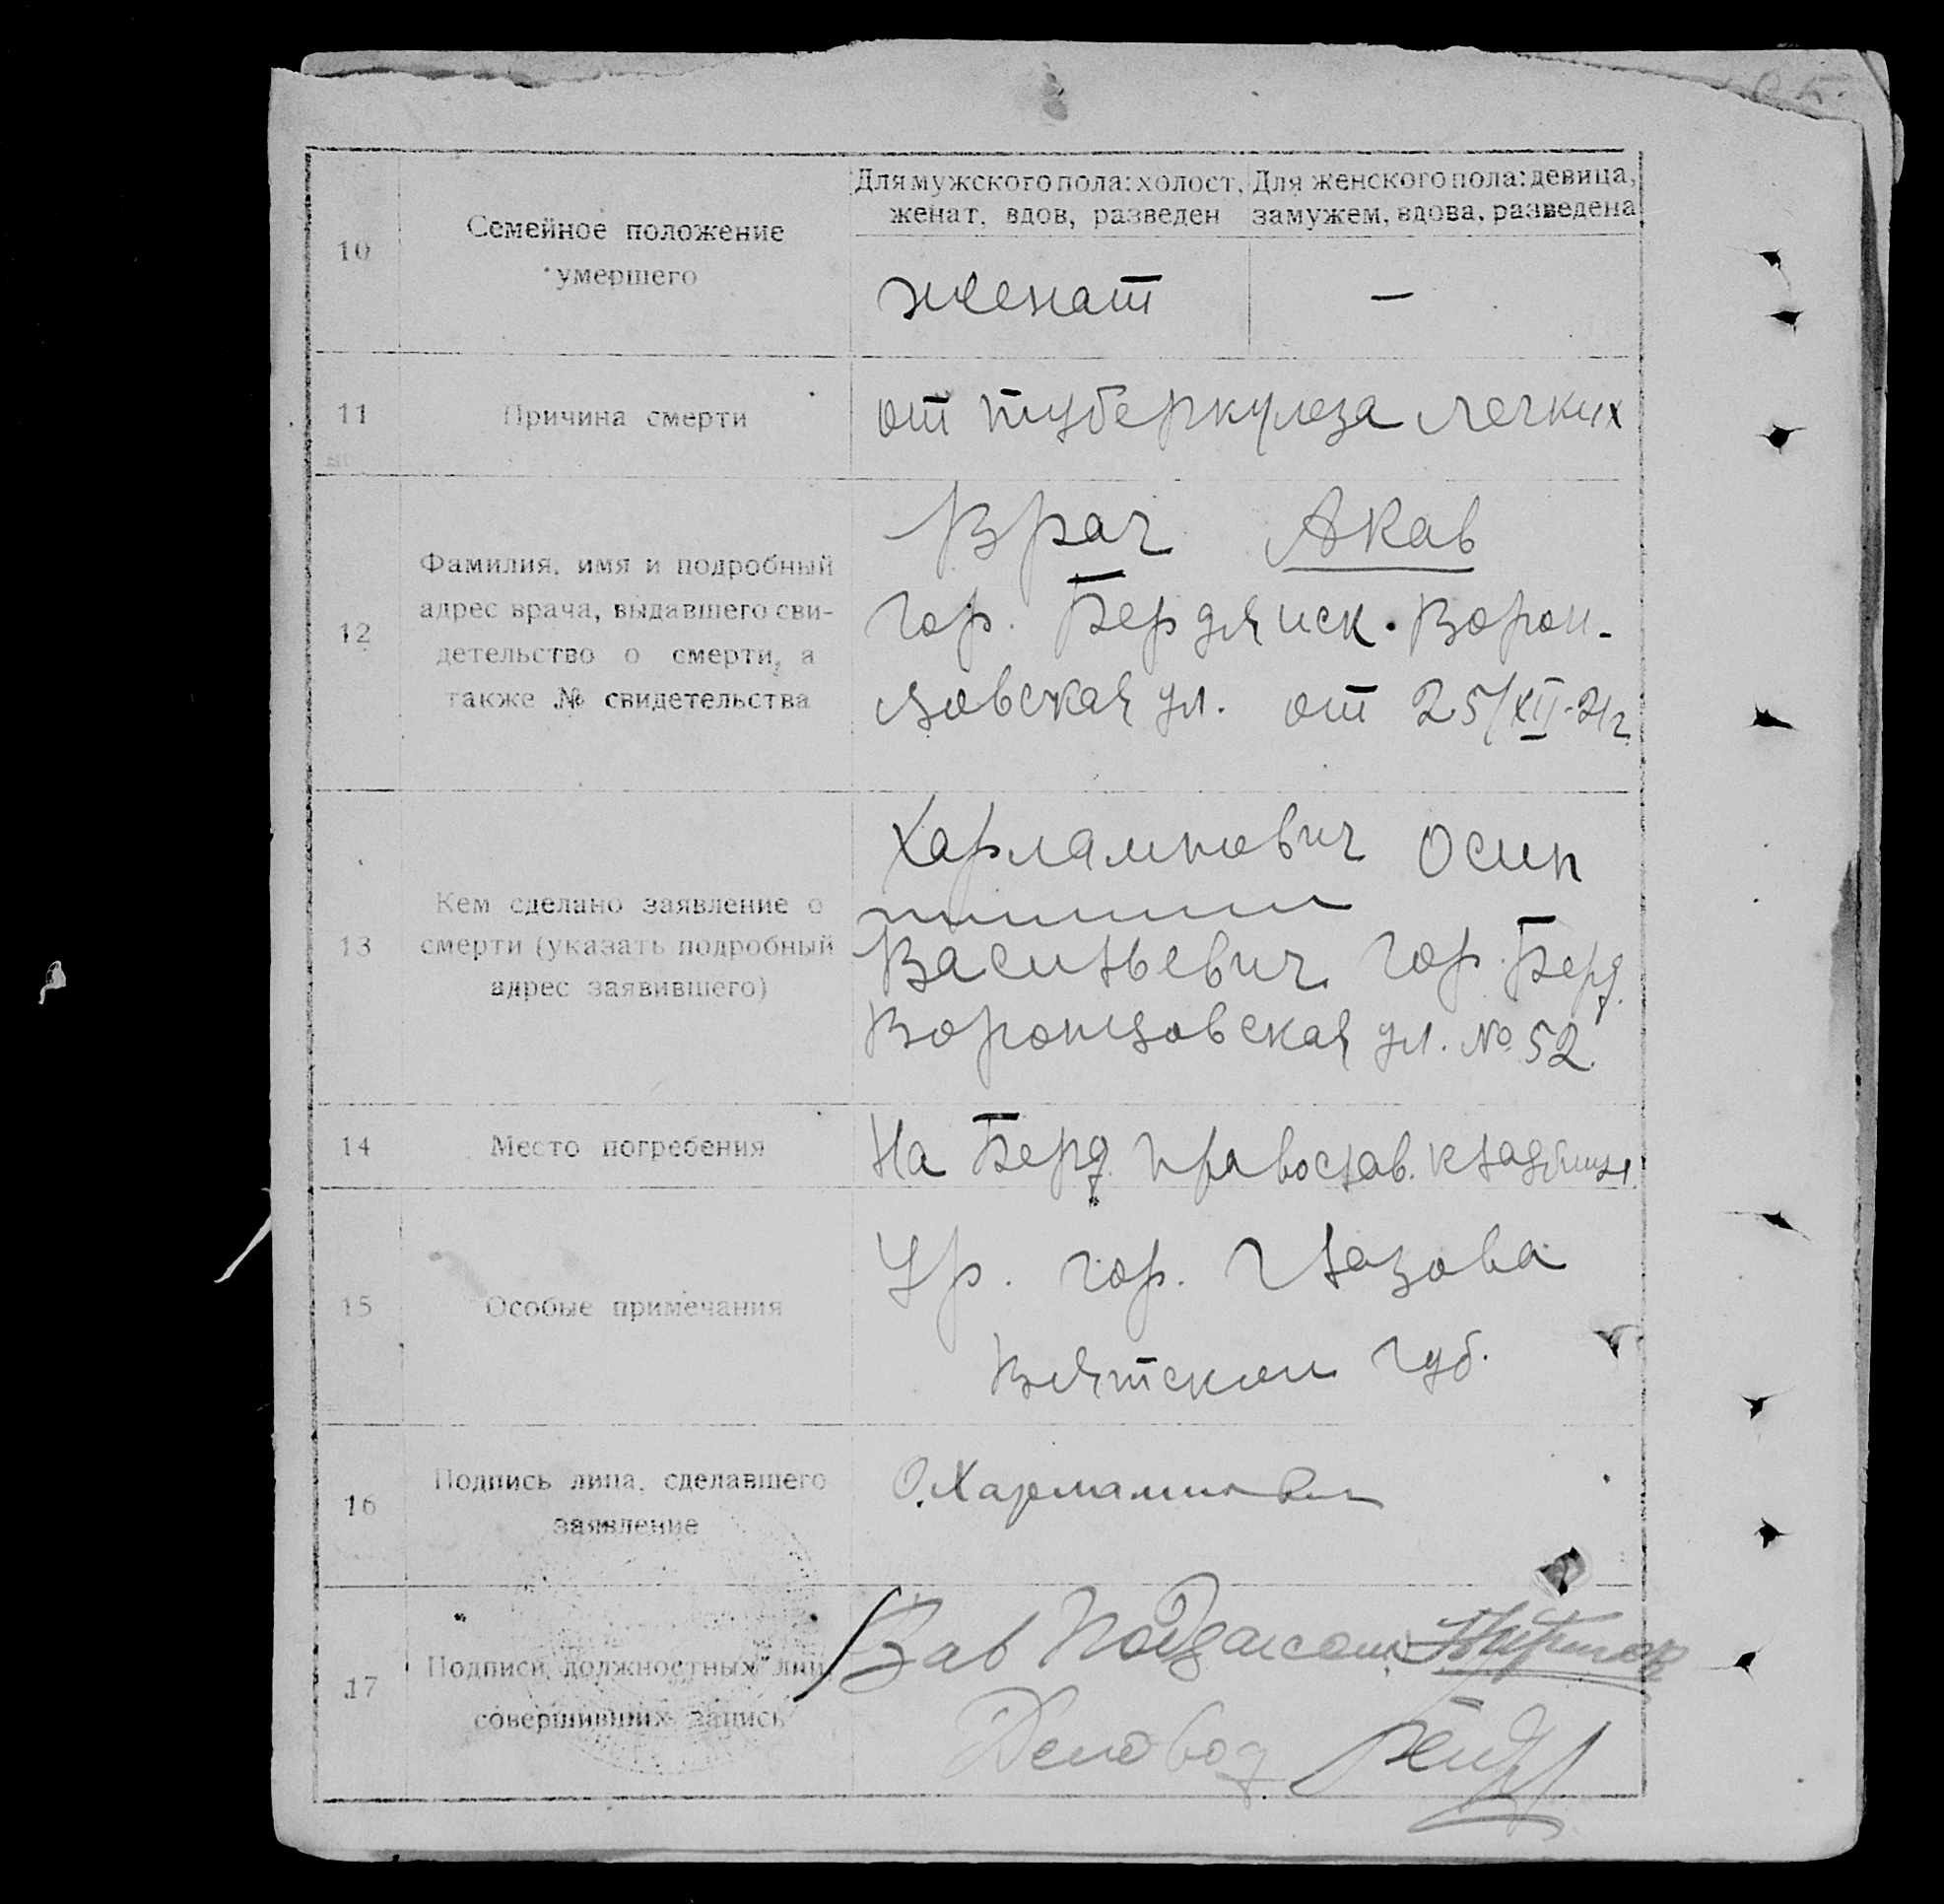 Для мужского пола: холост, женат, вдов, разведен
Для женского пола: девица, замужем, вдова, разведена
10
Семейное положение
умершего
женат
—
11
Причина смерти
от туберкулеза легких
12
Фамилия, имя и подробный
адрес врача, выдавшего сви-
детельство о смерти, а
также № свидетельства
Врач Акав
гор. Бердянск. Ворон-
цовская ул. от 25/XII-21г
13
Кем сделано заявление о
смерти (указать подробный
адрес заявившего)
Харлампович Осип
Васильевич гор. Берд.
Воронцовская ул. № 52.
14
Место погребения
На Берд. православ. кладбище
15
Особые примечания
Ур. гор. Глазова
Вятской губ.
16
Подпись лица, сделавшего
заявление
О. Харлампович
17
Подписи должностных лиц,
совершивших запись
Зав Подзагсом
Деловод